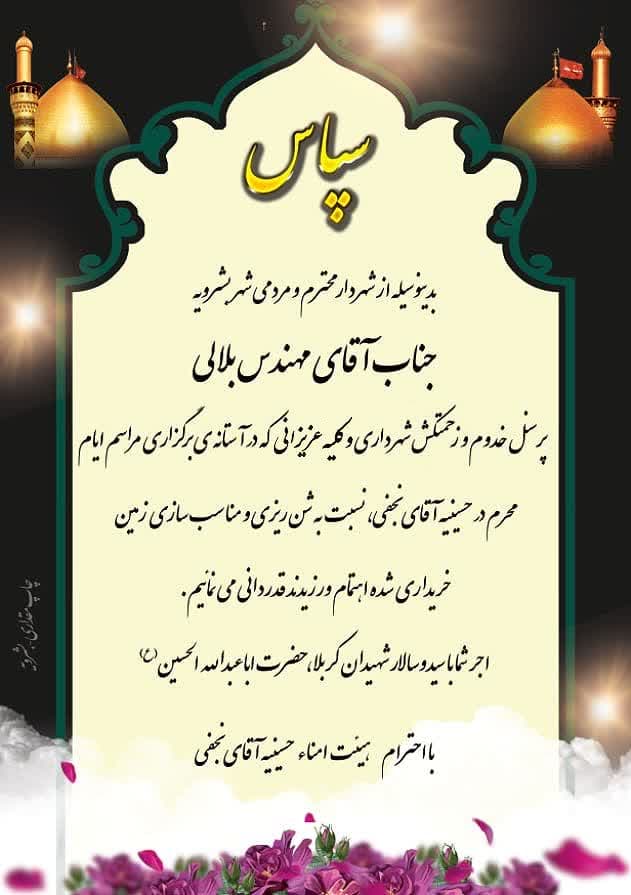 سپاس
بدینوسیله از شهردار محترم و مردمی شهر بشرویه
جناب آقای مهندس بلالی
پرسنل خدوم و زحمتکش شهرداری و کلیه عزیزانی که در آستانه ی برگزاری مراسم ایام
محرم در حسینیه آقای نجفی، نسبت به شن ریزی و مناسب سازی زمین
خریداری شده اهتمام ورزیدند قدردانی می نمائیم.
اجر شما با سید و سالار شهیدان کربلا، حضرت اباعبدالله الحسین (ع)
با احترام هیئت امناء حسینیه آقای نجفی
چاپ مقداری، بشرویه